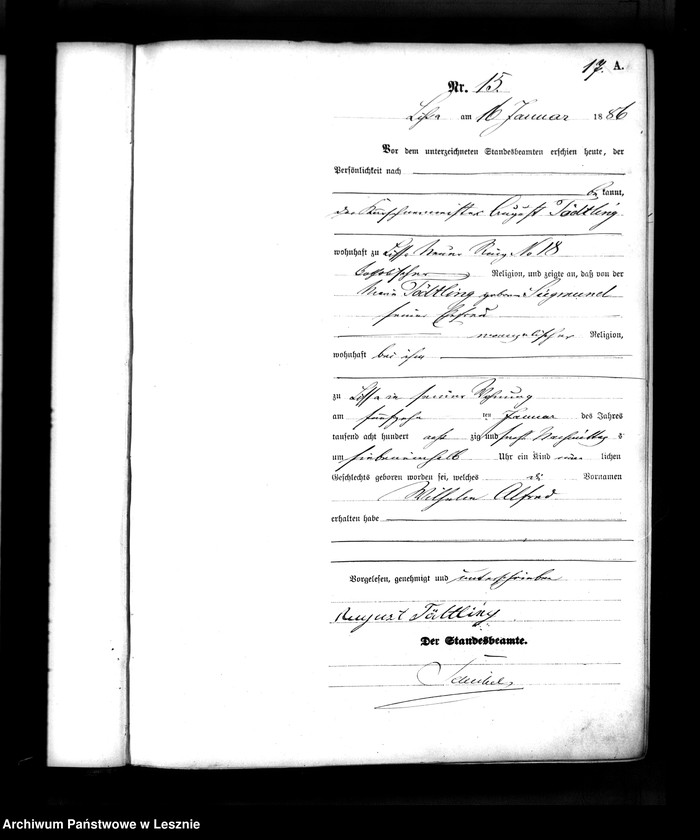 17. A.
Nr. 15.
Lissa am 16 Januar 1886
Vor dem unterzeichneten Standesbeamten erschien heute, der
Persönlichkeit nach
be kannt,
der Kürschnermeister August Tädtling
wohnhaft zu Lissa Neuer Ring No 18
katholischer Religion, und zeigte an, daß von der
Tädtling geborene Siegmund
seiner Ehefrau
evangelischer Religion,
wohnhaft bei ihm
zu Lissa in seiner Wohnung
am fünfzehn ten Januar des Jahres
tausend acht hundert acht zig und sechs Nachmittags
um siebeneinhalb Uhr ein Kind männ lichen
Geschlechts geboren worden sei, welches die Vornamen
Wilhelm Alfred
erhalten habe
Vorgelesen, genehmigt und unterschrieben
August Tädtling
Der Standesbeamte.
Archiwum Państwowe w Lesznie